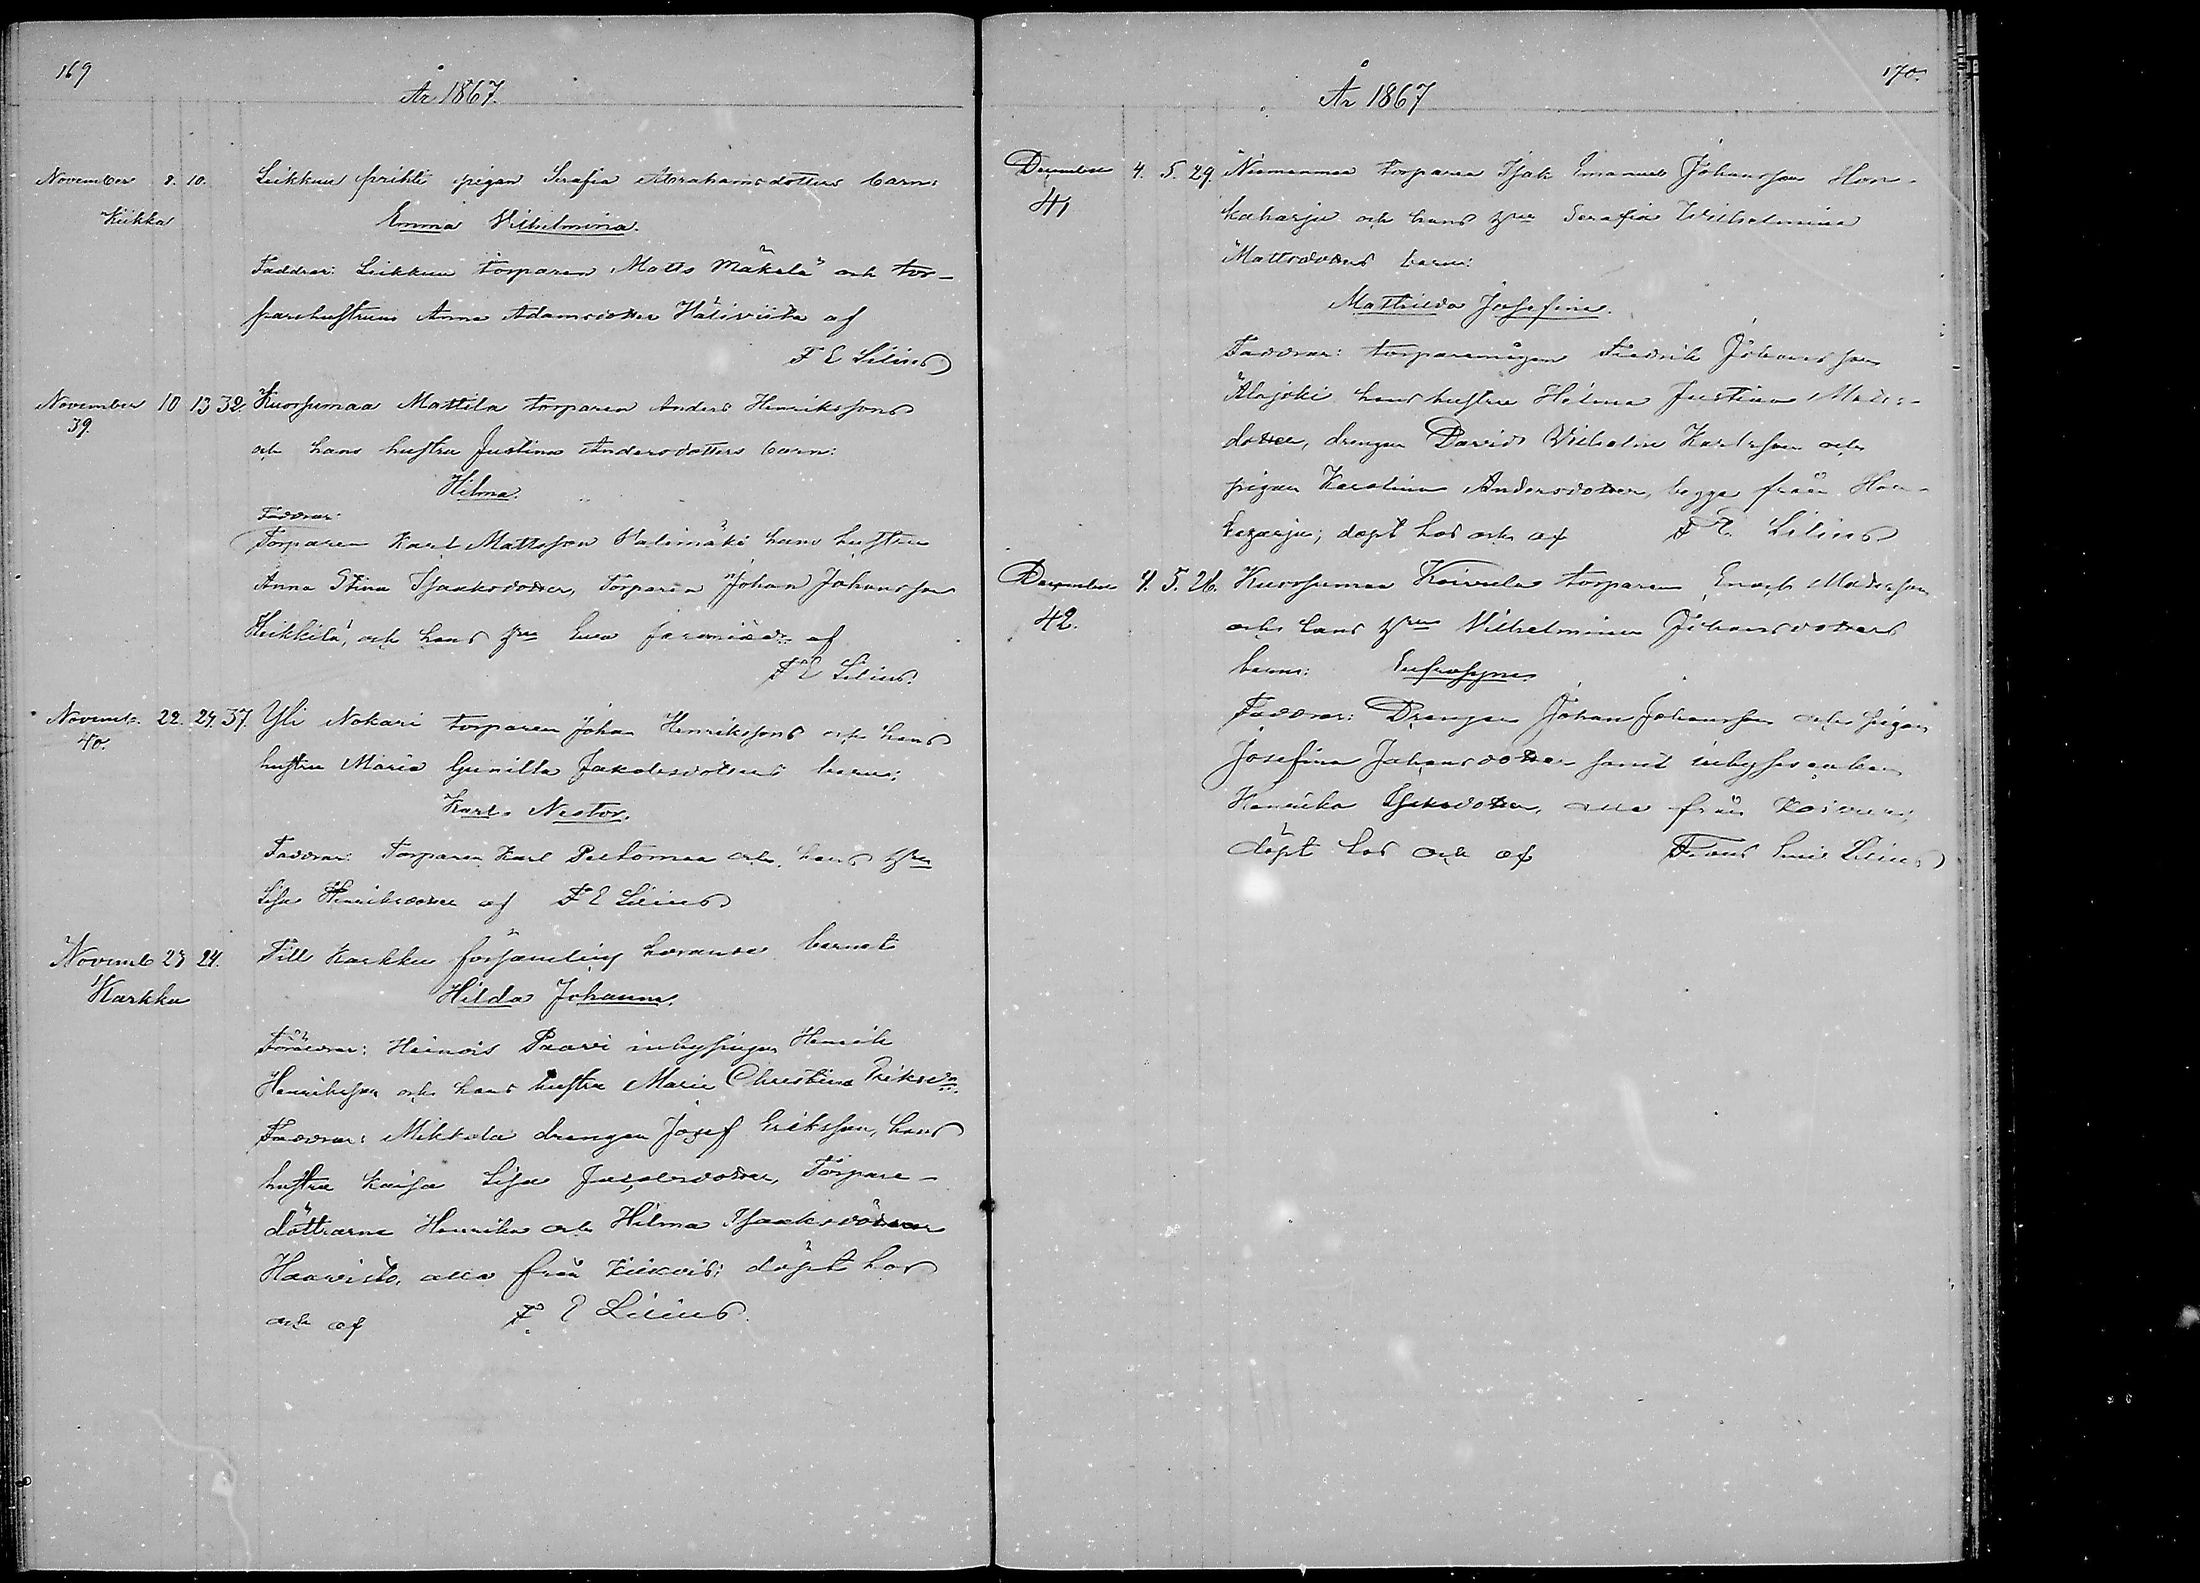 169
År 1867.
November 8. 10. Liikkuu frihte pigan Serafia Abrahamsdotters barn:
Kiikka Emma Vilhelmina.
Faddrar: Liikkuu torparen Matts Mäkelä och tor-
parehustrun Anna Adamsdotter af
F E Lilius
November 10 13 32. Kuorsumaa Mattila torparen Anders Henrikssons
39. och hans hustru Justina Andersdotters barn:
Hilma.
Faddrar:
Torparen Karl Mattsson Palimäki hans hustru
Anna Stina Isaaksdotter, Torparen Johan Johansson
Heikkilä, och hans hru Eva af
F E Lilius.
Novemb. 22. 24. 37. Yli Nokari torparen Johan Henrikssons och hans
40. hustru Maria Gunilla Jakobsdotters barn:
Karl Nestor.
Faddrar: Torparen Karl Peltomaa och hans hru
Lisa Henriksdotter af F E Lilius
Novemb 23 24. Till Karkku församling hörande barnet
Karkku Hilda Johanna.
Föräldrar: Heinois Paavi inhysingen Henrik
Henriksson och hans hustru Maria Christina Eriksdr.
Faddrar: Mikkola drengen Josef Eriksson, hans
hustru Kaisa Lisa Jacobsdotter, Torpare-
döttrarne Henrika och Hilma Isaaksdöttrar
Haavisto, alla från Kiikois; döpt hos
och af F. E Lilius.
170.
År 1867
December 4. 5. 29. Niemenmaa torparen Isak Emanuel Johansson Hon-
41 kaharju och hans hru Serafia Wilhelmina
Mattsdotters barn:
Mathilda Josefina.
Faddrar: torparemågen Fredrik Johansson
Alajoki hans hustru Helena Justina Matts-
dotter, drengen David Vilhelm Karlsson och
pigan Karolina Andersdotter, begge från Hon-
kaharju; döpt hos och af F E. Lilius
December 4. 5. 26. Kuorsumaa Koivula torparen Enoch Mattsson
42. och hans hru Vilhelmina Johansdotters
barn: Eufrosyne
Faddrar: Drengen Johan Johansson och pigan
Josefina Johansdotter samt inhyses enkan
Henrika Isaksdotter, alla från
döpt hos och af Frans Emil Lilius